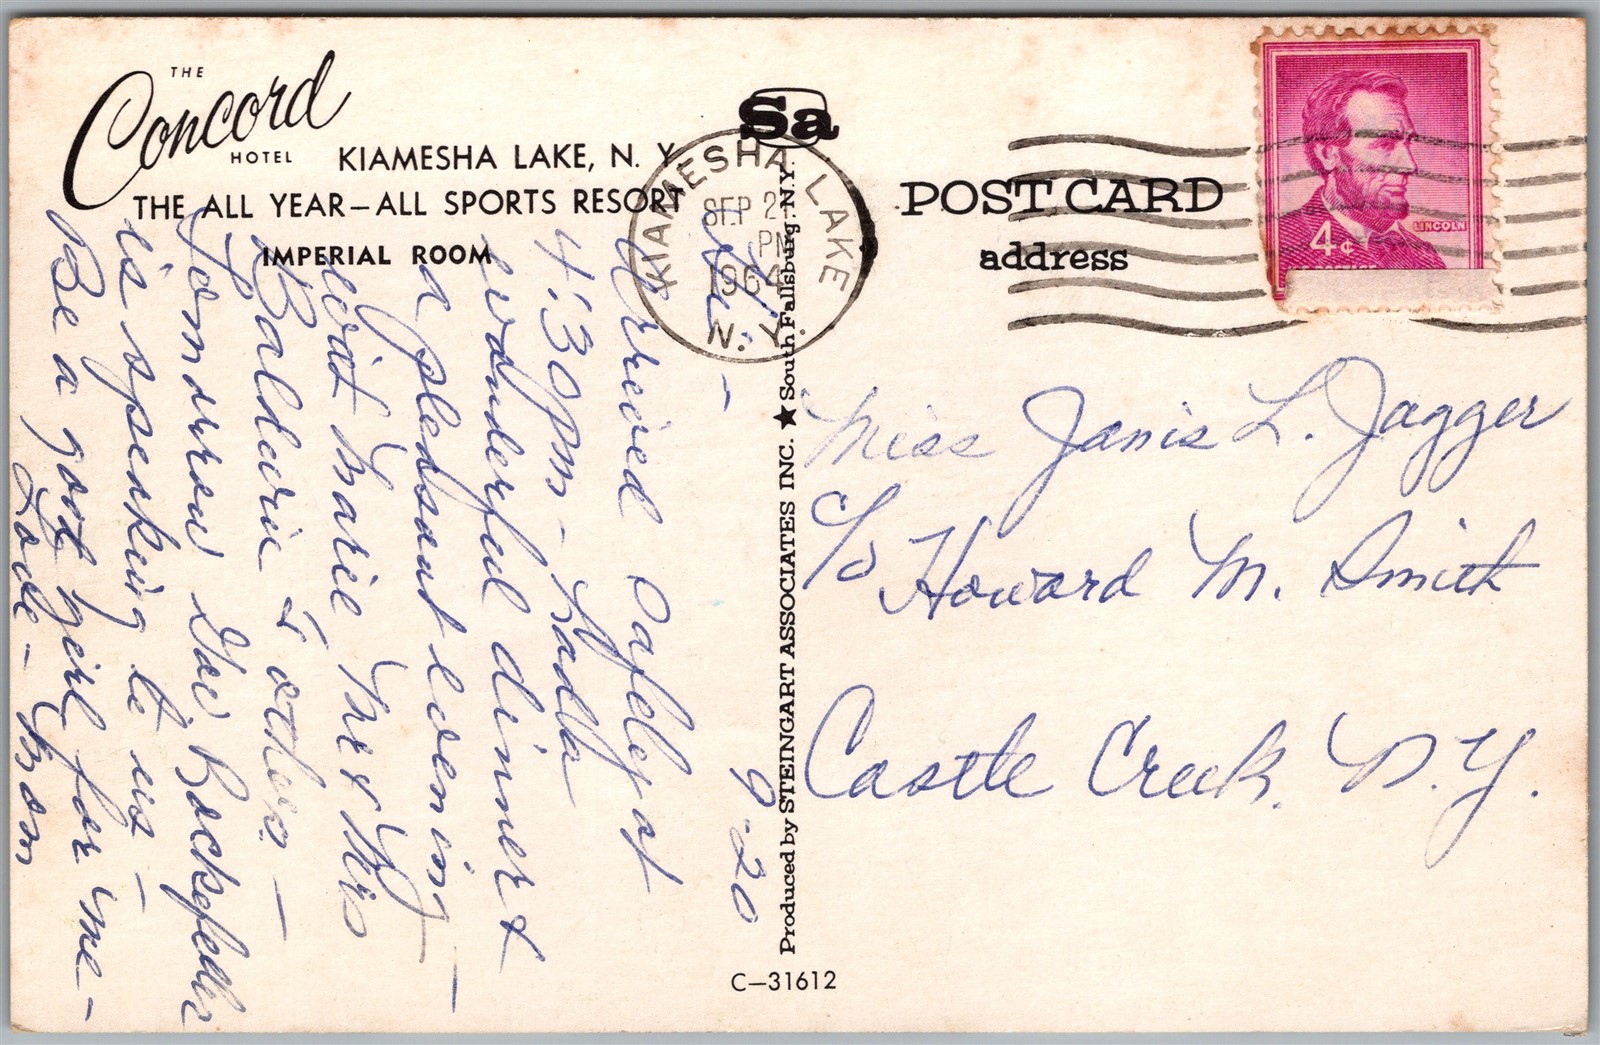 THE
Concord
HOTEL
KIAMESHA LAKE, N. Y.
THE ALL YEAR—ALL SPORTS RESORT
IMPERIAL ROOM
Sa
KIAMESHA LAKE
SEP 21
PM
1964
N. Y.
POST CARD
address
LINCOLN
4¢
Hi - 9-20
Arrived safely at
4:30 pm -
wonderful dinner &
a pleasant evening -
Marie, Mr & Mrs
Baldwin & others -
Tomorrow Gov. Rockefeller
is speaking to us -
Be a good girl for me -
Love - Mom
Miss Janis L. Jagger
c/o Howard M. Smith
Castle Creek. N.Y.
Produced by STEINGART ASSOCIATES INC. ★ South Fallsburg, N.Y.
C—31612